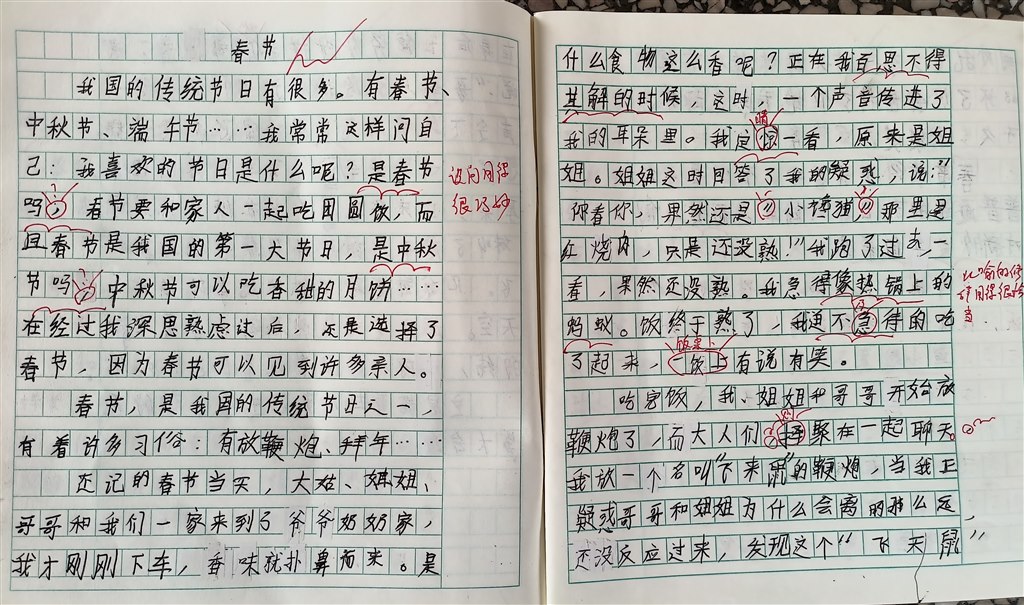 春节
我国的传统节日有很多。有春节、
中秋节、端午节……我常常这样问自
己：我喜欢的节日是什么呢？是春节
吗？春节要和家人一起吃团圆饭，而
且春节是我国的第一大节日，是中秋
节吗？中秋节可以吃香甜的月饼……
在经过我深思熟虑过后，还是选择了
春节，因为春节可以见到许多亲人。
春节，是我国的传统节日之一，
有着许多习俗：有放鞭炮、拜年……
还记的春节当天，大姑、姐姐、
哥哥和我们一家来到了爷爷奶奶家，
我才刚刚下车，香味就扑鼻而来。是
设问用得
很巧妙
什么食物这么香呢？正在我百思不得
其解的时候，这时，一个声音传进了
我的耳朵里。我定惊一看，原来是姐
睛
姐。姐姐这时回答了我的疑惑，说："
你看你，果然还是小馋猫！那里是
红烧肉，只是还没熟！"我跑了过去，一
看，果然还没熟。我急得像热锅上的
蚂蚁。饭终于熟了，我迫不急待的吃
了起来，饭上有说有笑。
饭桌上
吃完饭，我、姐姐和哥哥开始放
鞭炮了，而大人们聚在一起聊天。
我放一个名叫"下来鼠"的鞭炮，当我正
疑惑哥哥和姐姐为什么会离的那么远，
还没反应过来，发现这个"飞天鼠"
比喻的修
辞用得很恰
当